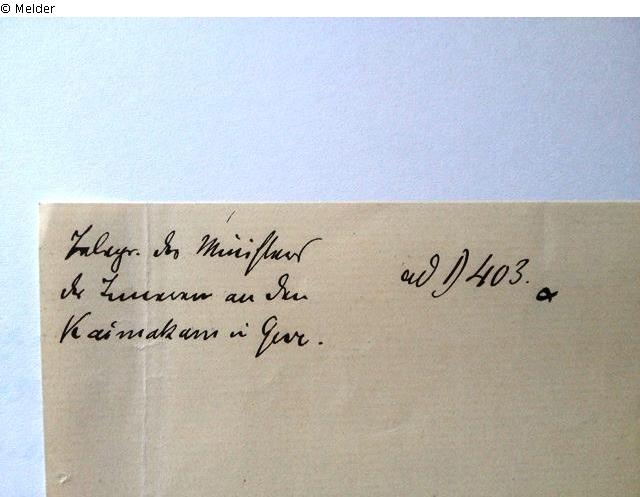 © Melder
Telegr. des Ministers
des Inneren an den
Kaimakam in Gewr.
ad 1) 403.